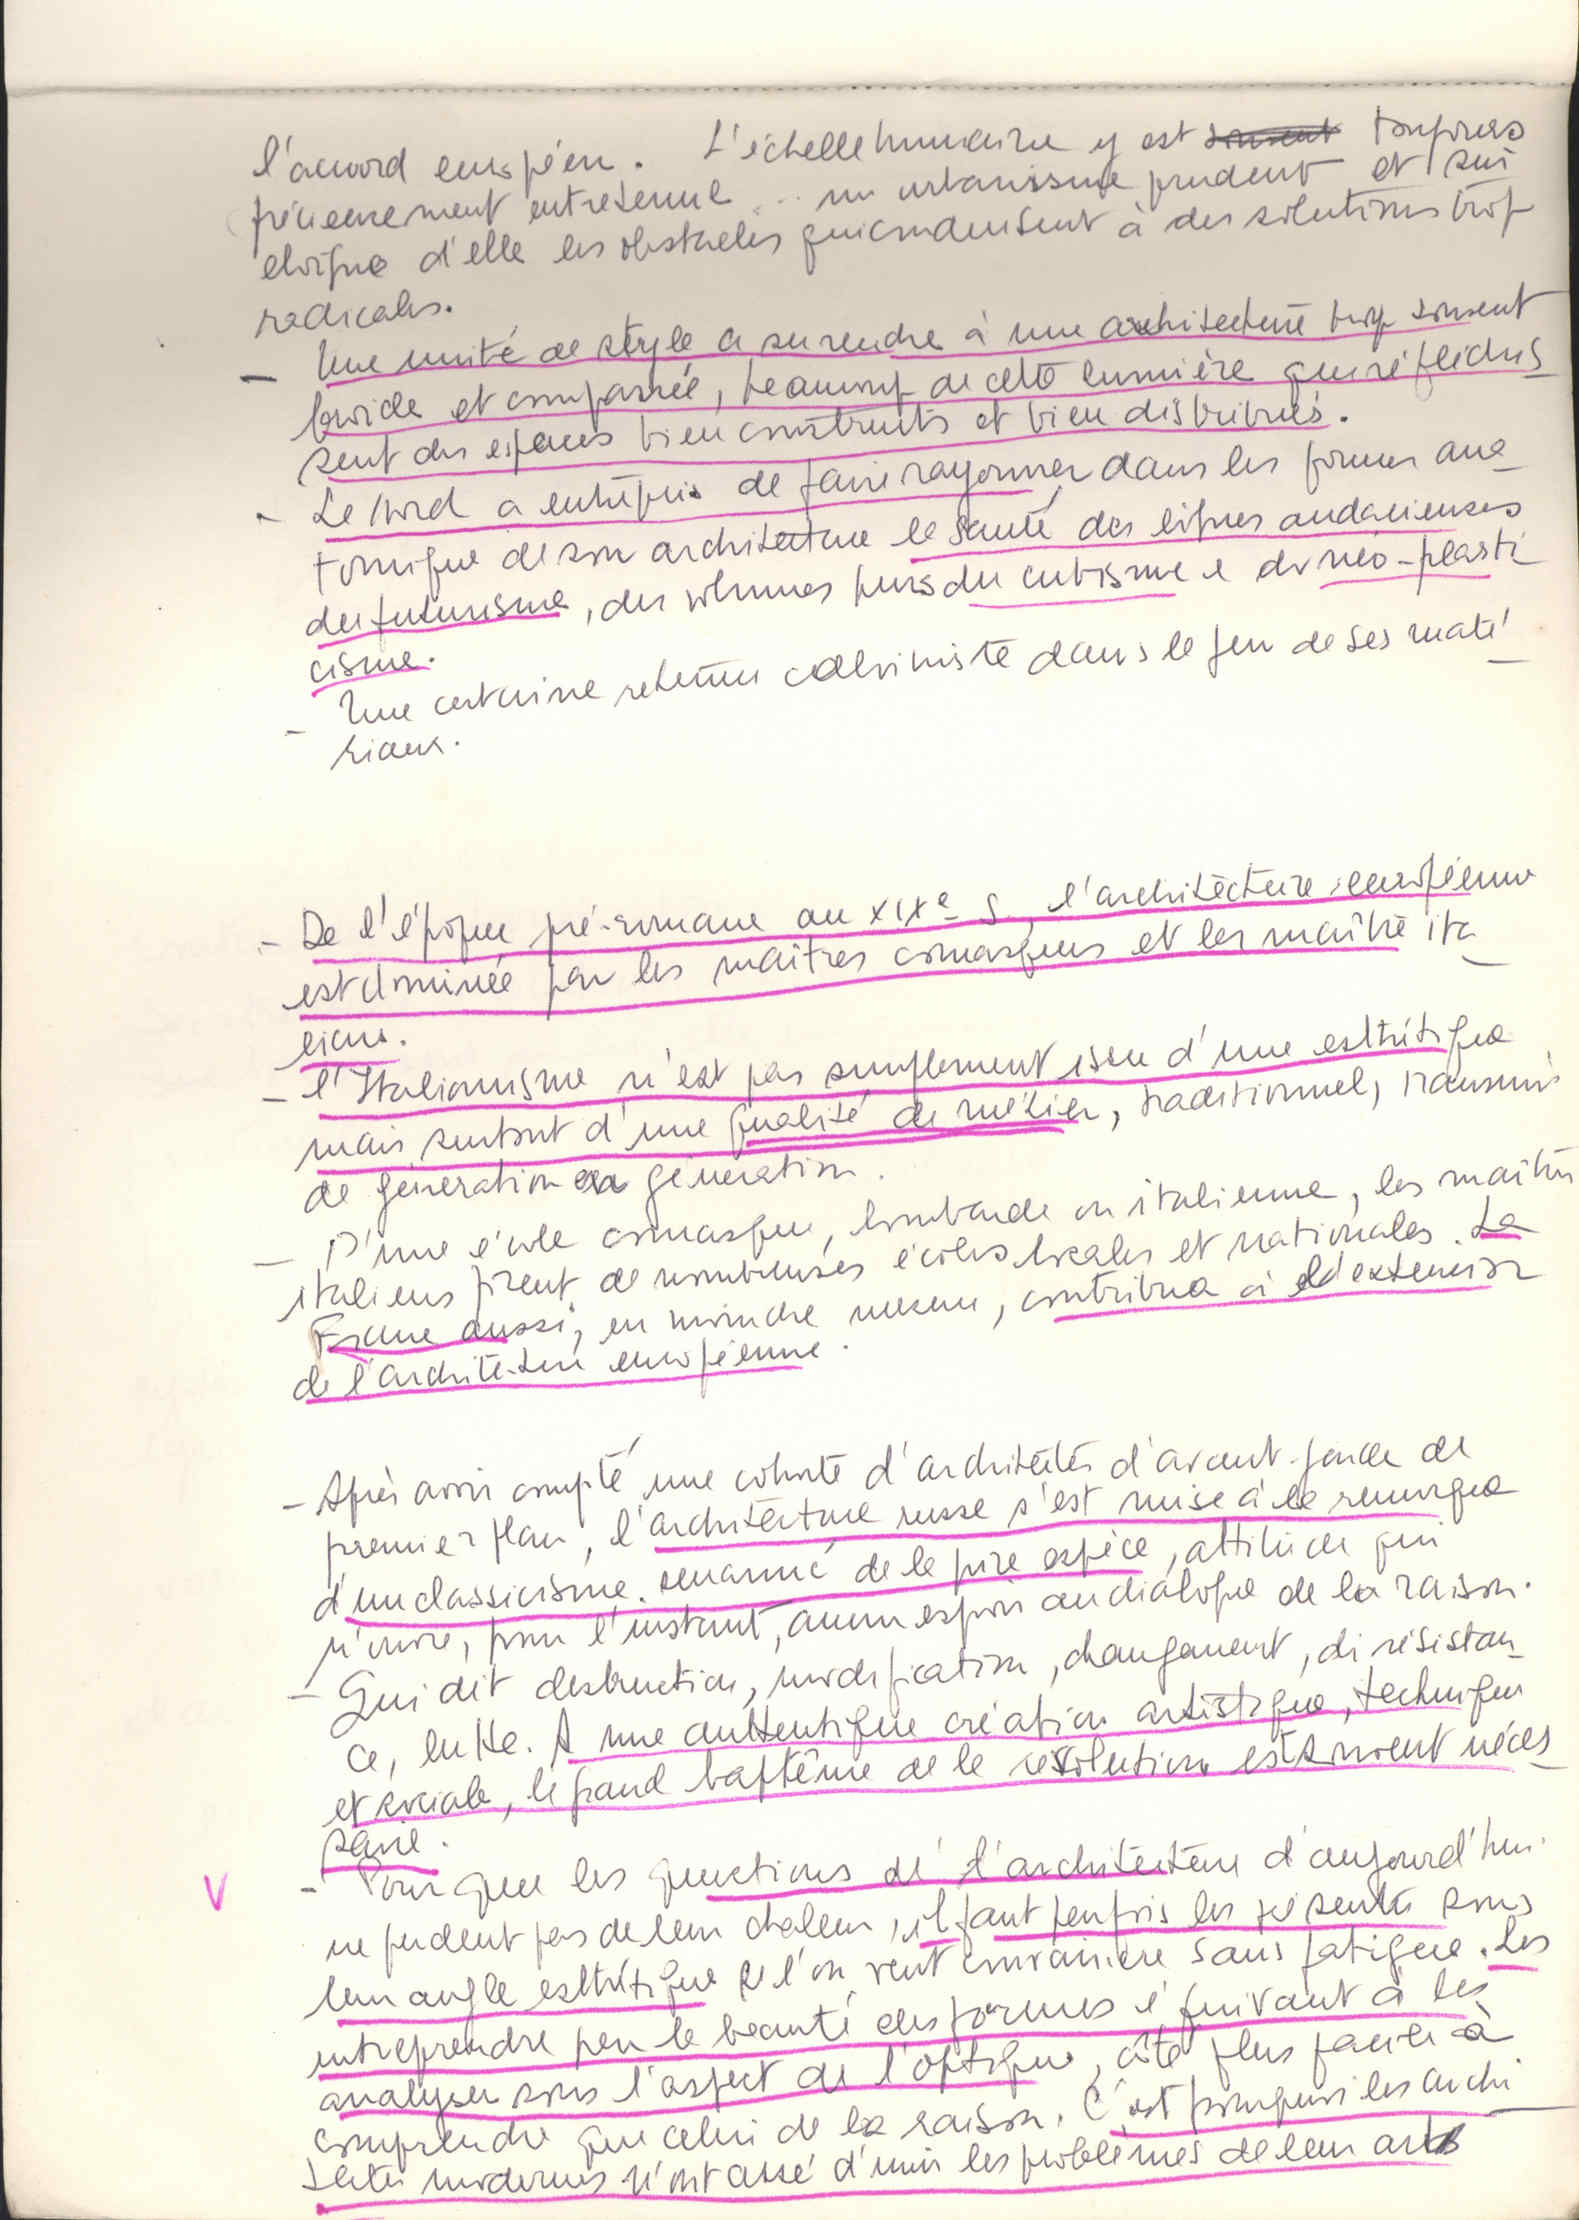 l'accord européen. L'échelle humaine y est souvent toujours
précieusement entretenue... un urbanisme prudent et sui
éloigne d'elle les obstacles qui conduisent à des solutions trop
radicales.
- Une unité de style a su rendre à une architecture trop souvent
froide et compassée, beaucoup de cette lumière que réfléchis
sent des espaces bien construits et bien distribués.
- Le Nord a entrepris de faire rayonner dans les formes ana
tomique de son architecture la santé des lignes audacieuses
du futurisme, des volumes purs du cubisme e du néo-plasti
cisme.
- Une certaine retenue calviniste dans le jeu de ses maté
riaux.
- De l'époque pré-romane au XIXe s, l'architecture européenne
est dominée par les maîtres comasques et les maître ita
liens.
- l'Italianisme n'est pas simplement issu d'une esthétique
mais surtout d'une qualité de métier, traditionnel, transmis
de génération en génération.
- D'une école comasque, lombarde ou italienne, les maîtres
italiens firent de nombreuses écoles locales et nationales. La
France aussi, en moindre mesure, contribua à l'extension
de l'architecture européenne.
- Après avoir compté une cohorte d'architectes d'avant-garde de
premier plan, l'architecture russe s'est mise à la remorque
d'un classicisme suranné de la pire espèce, attitude qui
n'ouvre, pour l'instant, aucun espoir au dialogue de la raison.
- Qui dit destruction, modification, changement, di résistan
ce, lutte. A une authentique création artistique, technique
et sociale, le grand baptême de la révolution est souvent néces
saire.
V - Pour que les questions de l'architecture d'aujourd'hui
ne perdent pas de leur chaleur, il faut parfois les présenter sous
leur angle esthétique si l'on veut convaincre sans fatigue. Les
entreprendre par la beauté des formes équivaut à les
analyser sous l'aspect de l'optique, côté plus facile à
comprendre que celui de la raison. C'est pourquoi les archi
tectes modernes n'ont cessé d'unir les problèmes de leur arts